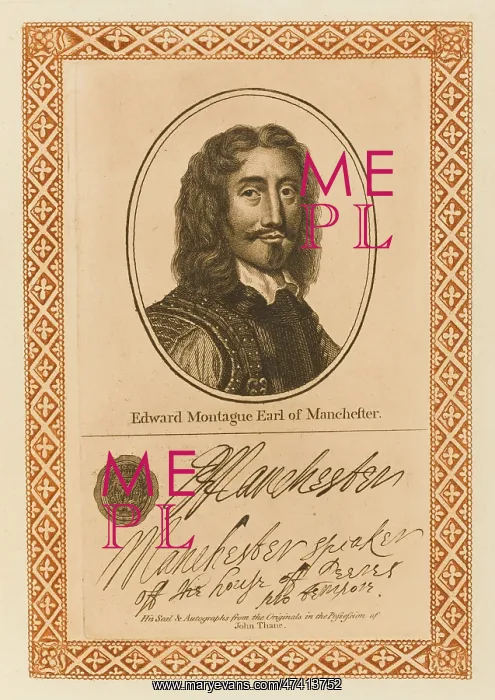 ME
PL
Edward Montague Earl of Mancheſter.
ME
PL
E Manchester
Manchester speaker
off the house off Peeres
pro tempore.
His Seal & Autographs from the Originals in the Poſſeſsion of
John Thane.
www.maryevans.com/47413752